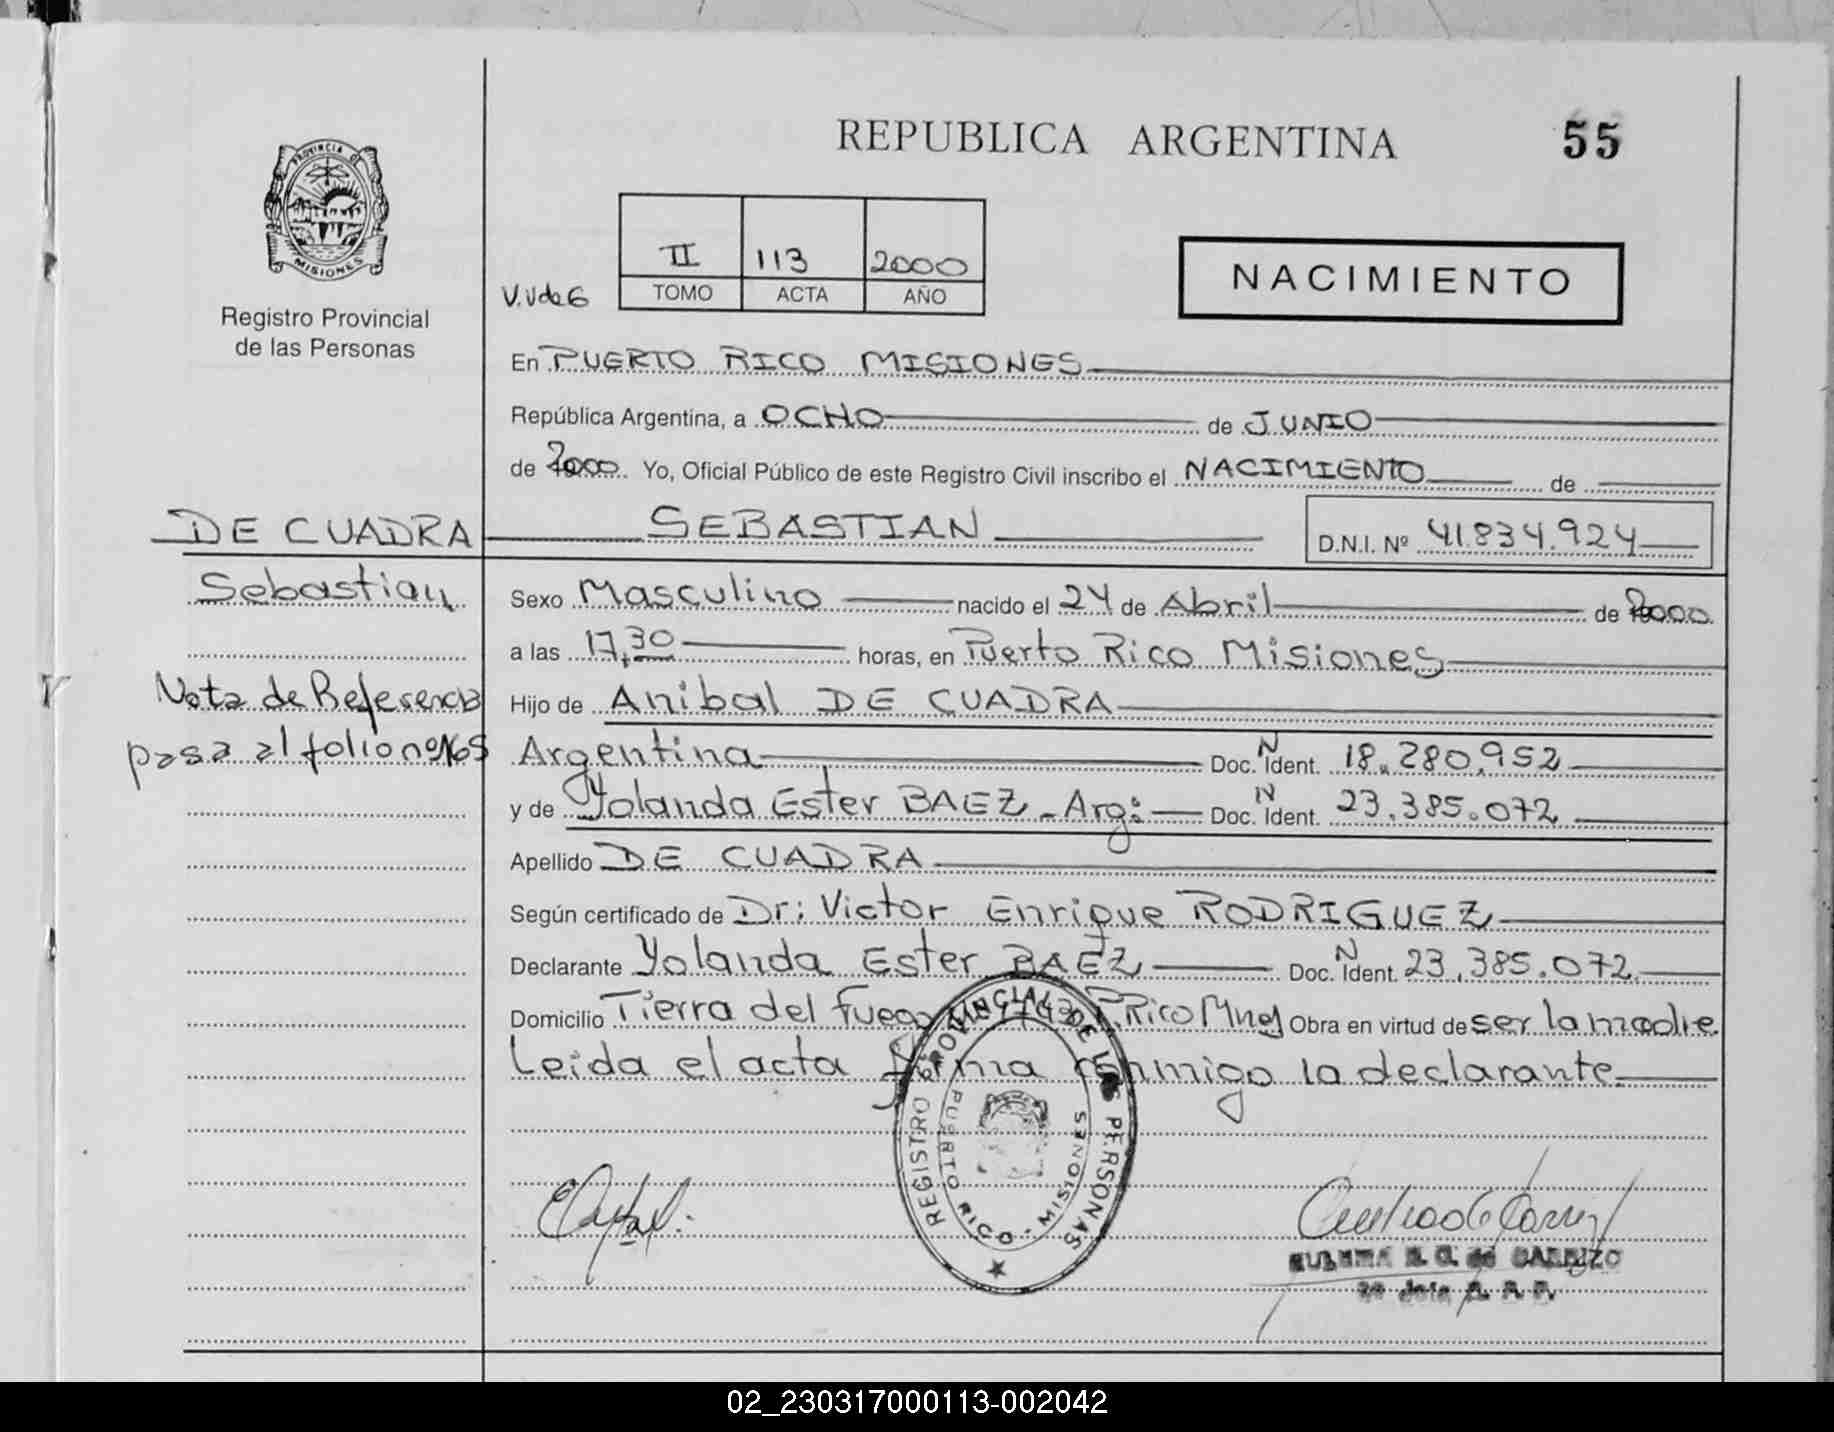 REPUBLICA ARGENTINA
55
PROVINCIA DE
MISIONES
Registro Provincial
de las Personas
II 113 2000
TOMO ACTA AÑO
NACIMIENTO
En PUERTO RICO MISIONES
República Argentina, a OCHO de JUNIO
de 2000 Yo, Oficial Público de este Registro Civil inscribo el NACIMIENTO de
DE CUADRA SEBASTIAN D.N.I. Nº 41.834.924
Sebastian
Sexo Masculino nacido el 24 de Abril de 2000
a las 17,30 horas, en Puerto Rico Misiones
Nota de Referencia
Hijo de Anibal DE CUADRA
pasa al folio nº
Argentina Doc. N Ident. 18.280.952
y de Yolanda Ester BAEZ - Arg: Doc. N Ident. 23.385.072
Apellido DE CUADRA
Según certificado de Dr: Victor Enrique RODRIGUEZ
Declarante Yolanda Ester BAEZ Doc. N Ident. 23.385.072
Domicilio Tierra del Fuego P. Rico Mnes Obra en virtud de ser la madre
Leida el acta firma conmigo la declarante.
REGISTRO PROVINCIAL DE LAS PERSONAS
PUERTO RICO - MISIONES
de CARRIZO
02_230317000113-002042